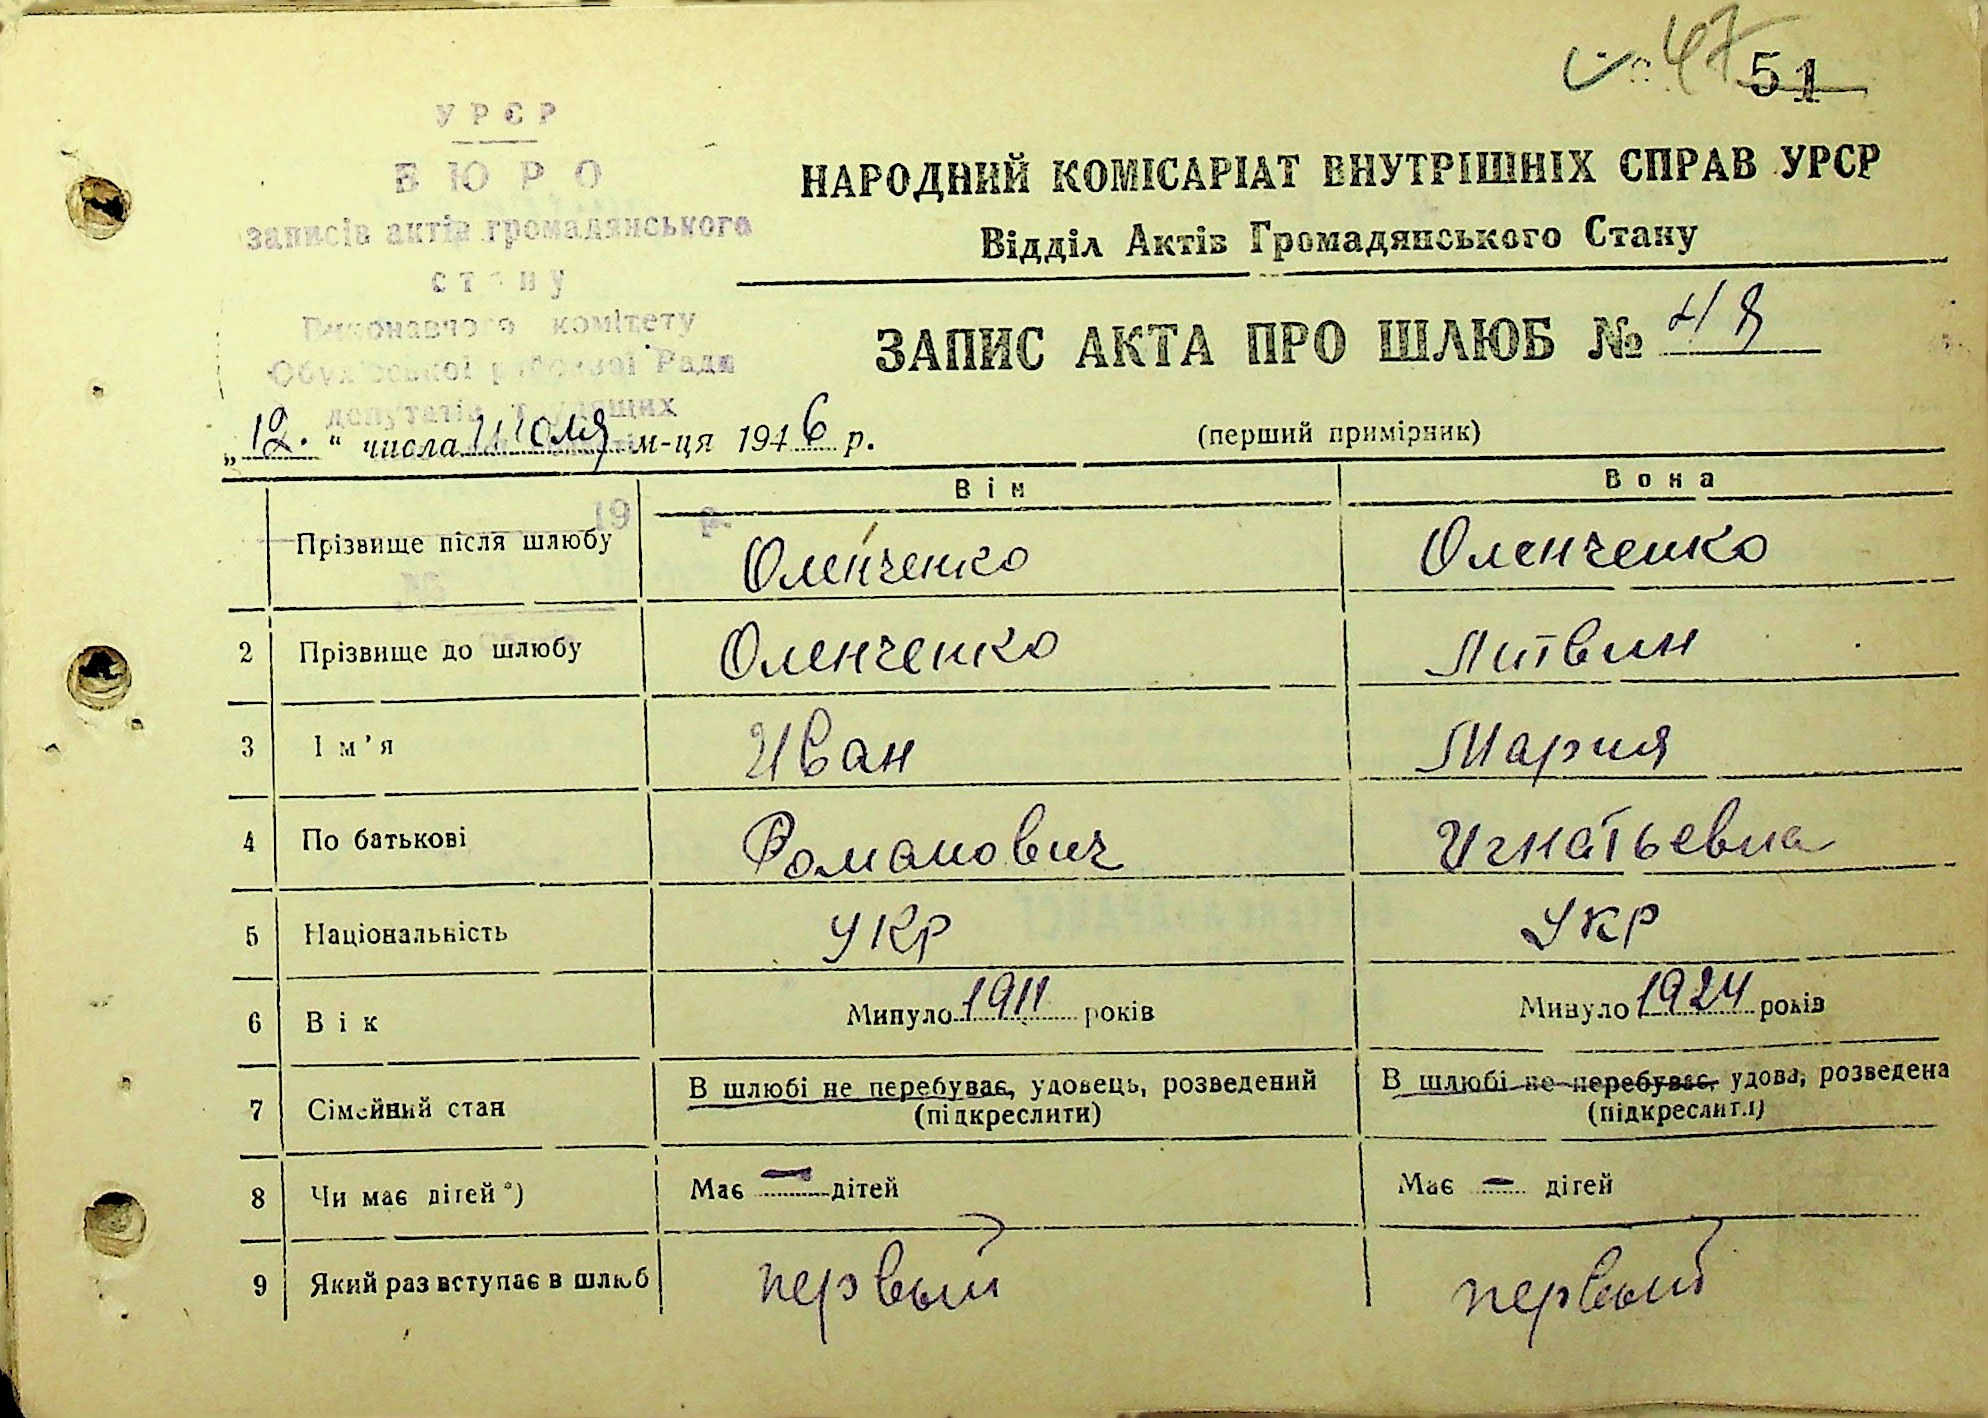 47
51
УРСР
БЮРО
записів актів громадянського
стану
Виконавчого комітету
Обухівської районної Ради
депутатів трудящих
НАРОДНИЙ КОМІСАРІАТ ВНУТРІШНІХ СПРАВ УРСР
Відділ Актів Громадянського Стану
ЗАПИС АКТА ПРО ШЛЮБ № 48
„12." числа Июля м-ця 1946 р.
(перший примірник)
Він Вона
19 р.
Прізвище після шлюбу Оленченко Оленченко
№
2 Прізвище до шлюбу Оленченко Литвин
3 Ім'я Иван Мария
4 По батькові Романович Игнатьевна
5 Національність УКР УКР
6 Вік Минуло 1911 років Минуло 1924 років
7 Сімейний стан В шлюбі не перебуває, удовець, розведений В шлюбі не перебуває, удова, розведена
(підкреслити) (підкреслити)
8 Чи має дітей*) Має — дітей Має — дітей
9 Який раз вступає в шлюб первый первый